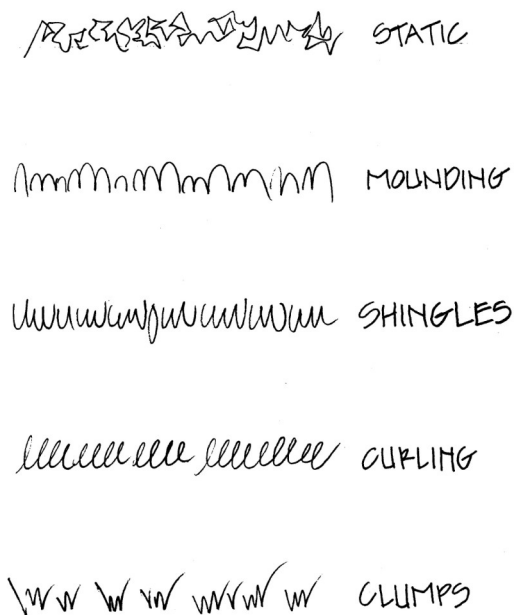 STATIC
MOUNDING
SHINGLES
CURLING
CLUMPS